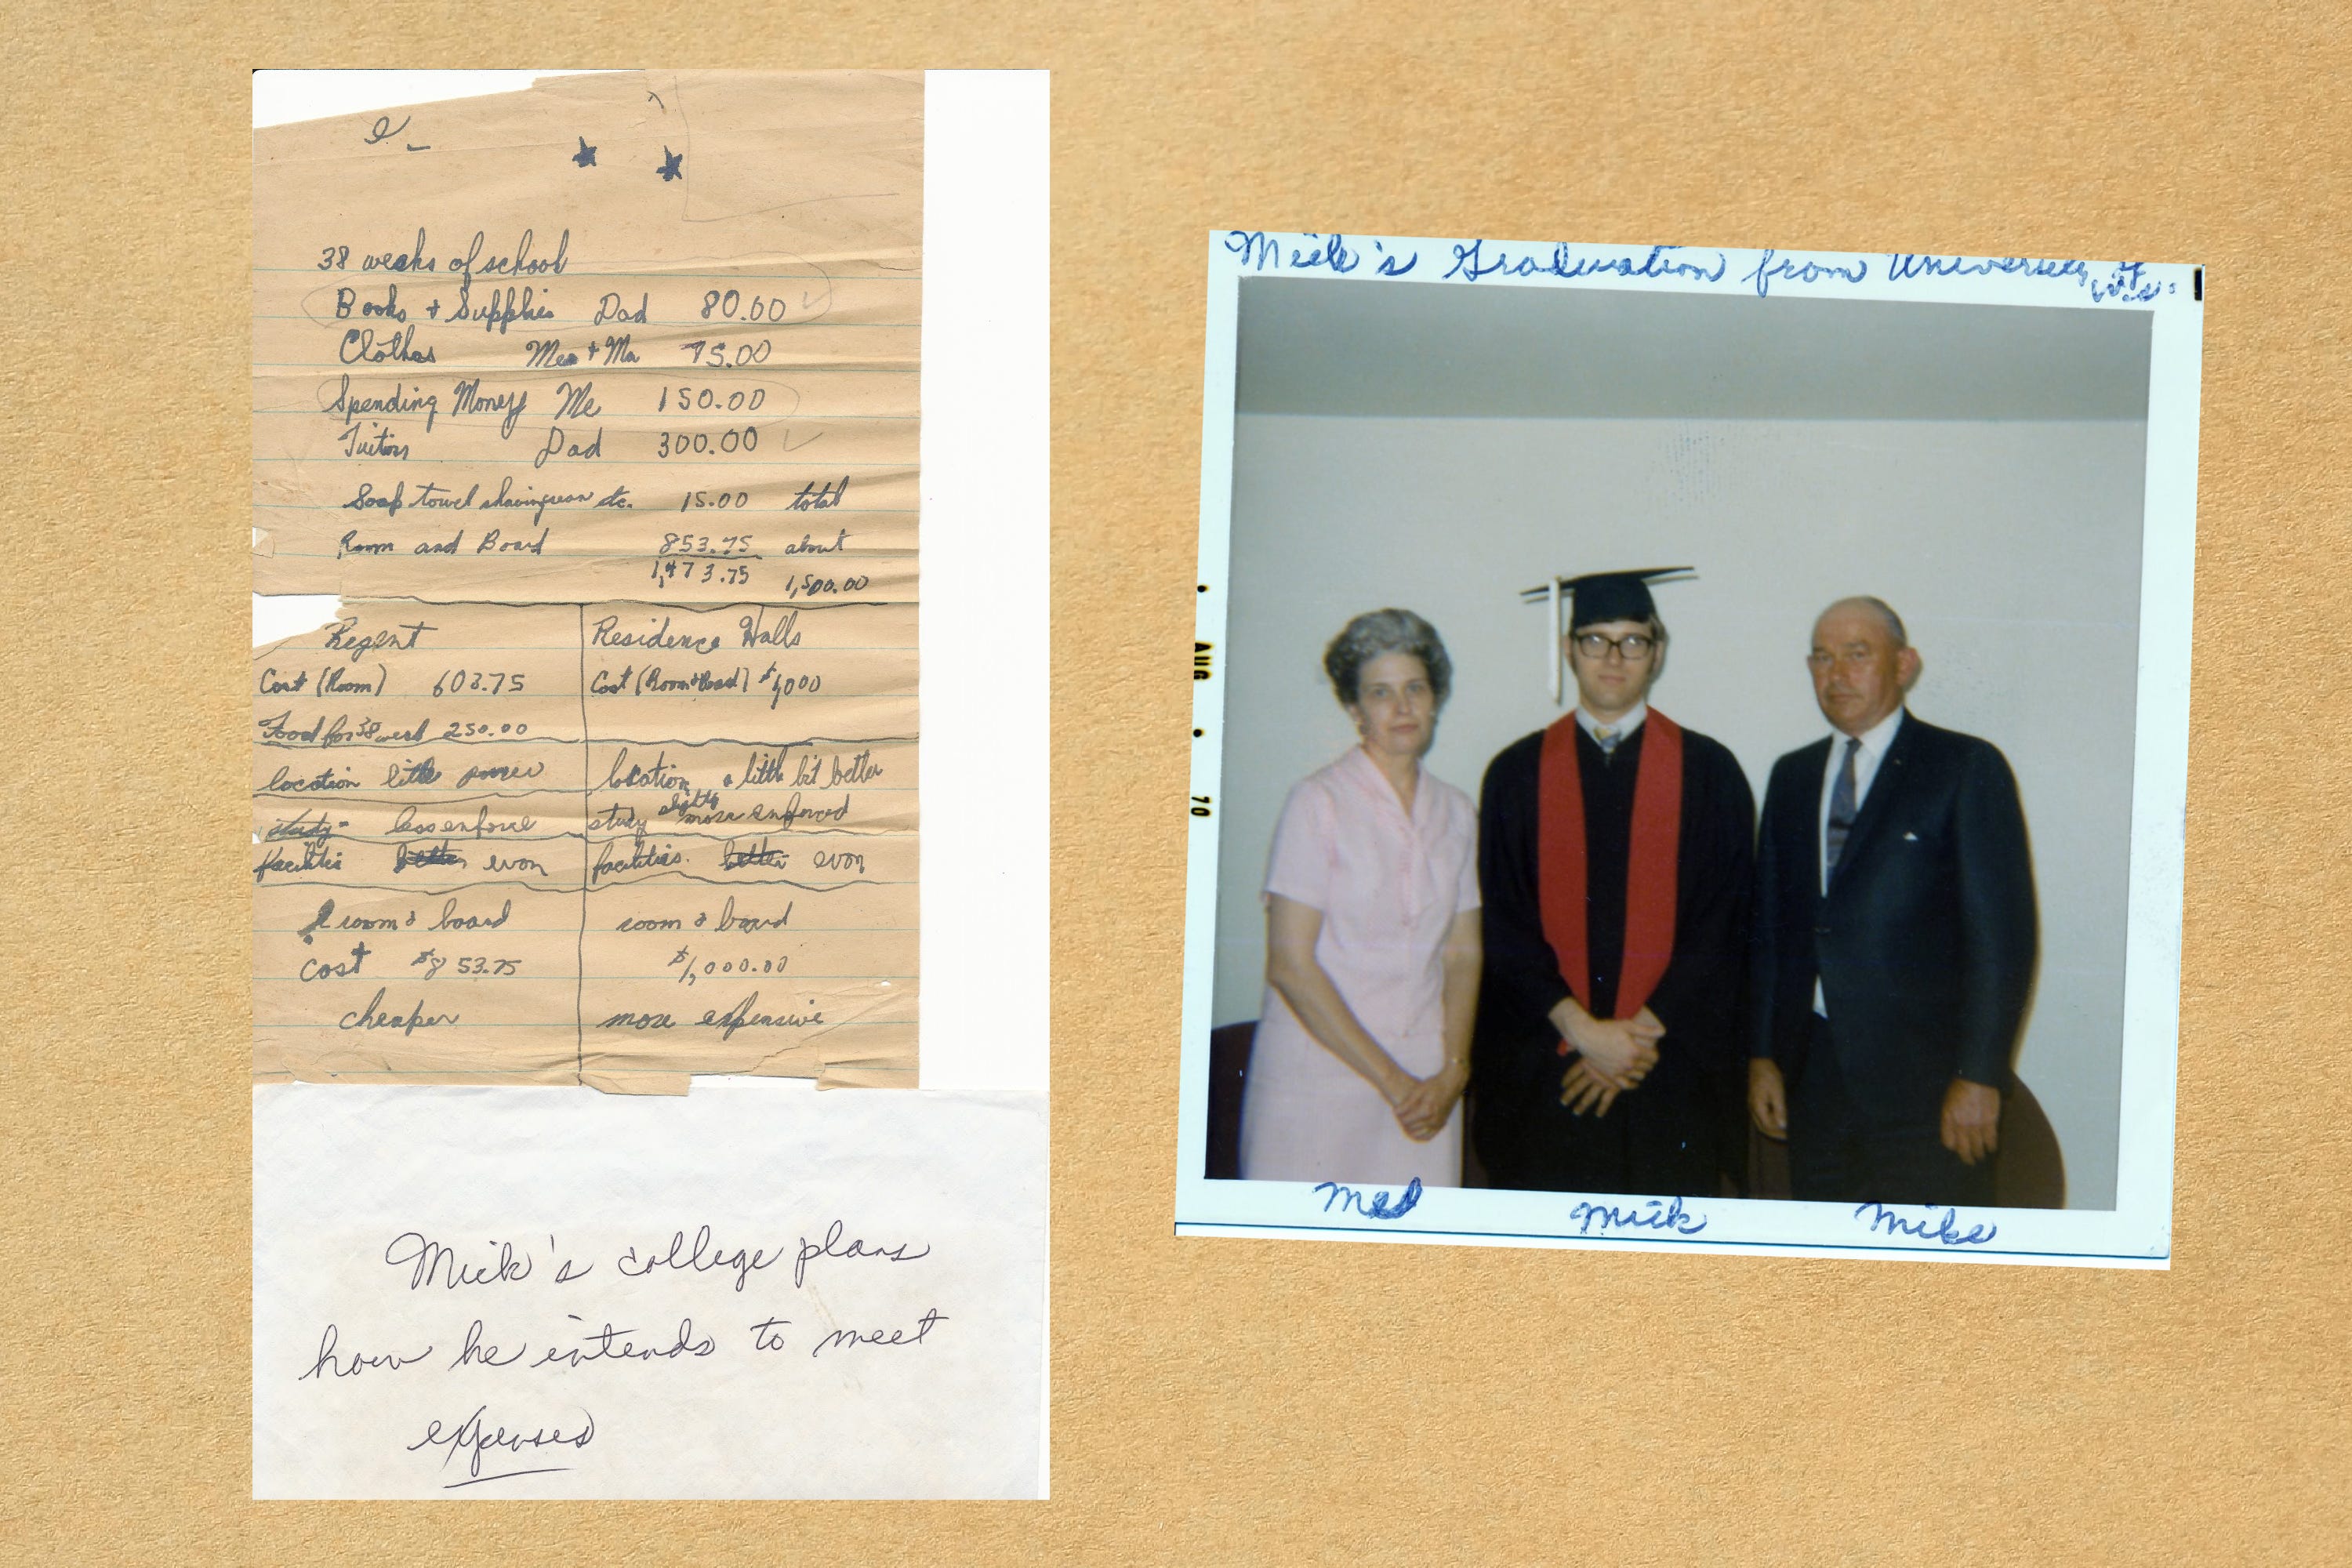 38 weeks of school
Books + Supplies Dad 80.00
Clothes Me + Ma 75.00
Spending Money Me 150.00
Tuition Dad 300.00
Soap towel shaving etc. 15.00 total
Room and Board 853.75 about
1,473.75 1,500.00
Regent
Cost (Room) 603.75
Food for 38 week 250.00
location little
study - less enforce
facilities better even
room & board
cost $853.75
cheaper
Residence Halls
Cost (Room & Board) $1,000
location a little bit better
study slightly more enforced
facilities. better even
room & board
$1,000.00
more expensive
Mick's college plans
how he intends to meet
expenses
Mick's Graduation from University of Wis.
AUG • 70
Med Mick Mike